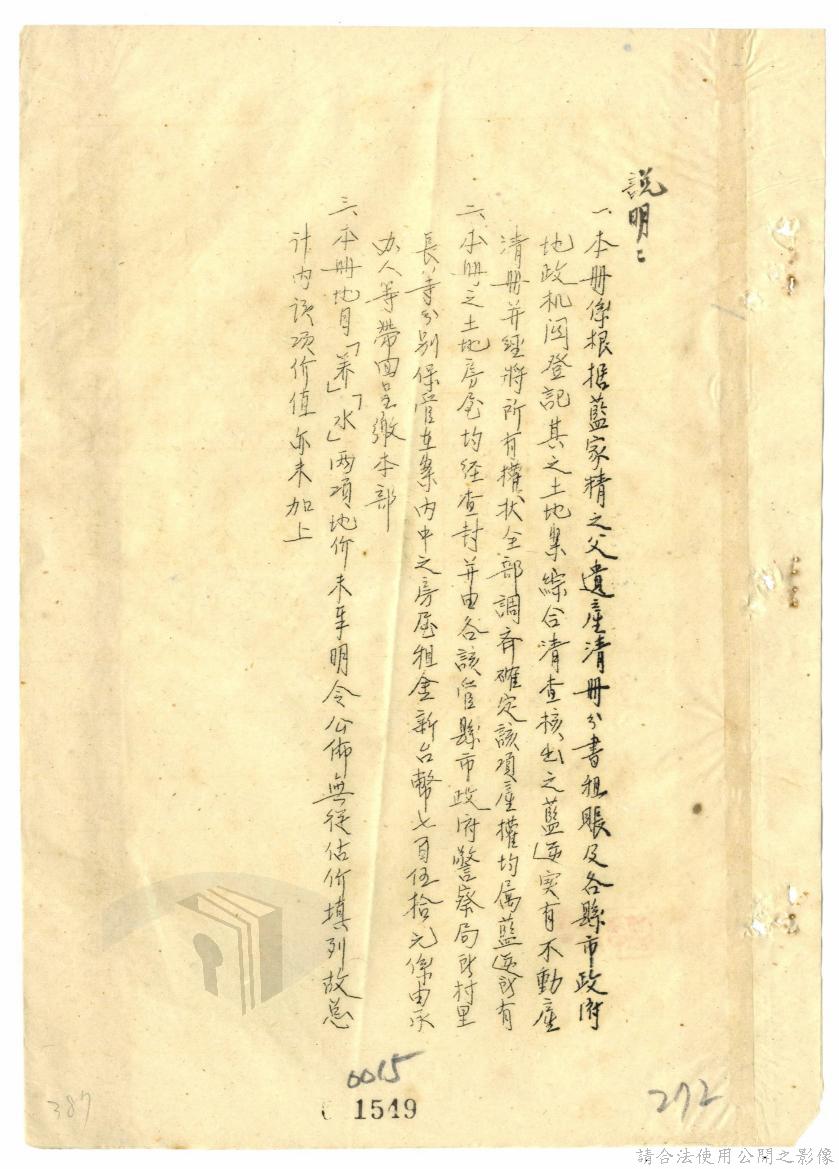 說明：
一、本册係根据藍家精之父遺產清册分書租賬及各縣市政府
地政机関登記其之土地業綜合清查核出之藍逆实有不動產
清册并經將所有權狀全部調齐確定該項產權均属藍逆所有
二、本册之土地房屋均经查封并由各該管縣市政府警察局所村里
長等分别保管在案内中之房屋租金新台幣七百伍拾元係由承
办人等帶回呈繳本部
三、本册地目「养」「水」兩項地价未奉明令公佈無從估价填列故总
计内该项价值亦未加上
0015
1549
272
387
請合法使用公開之影像